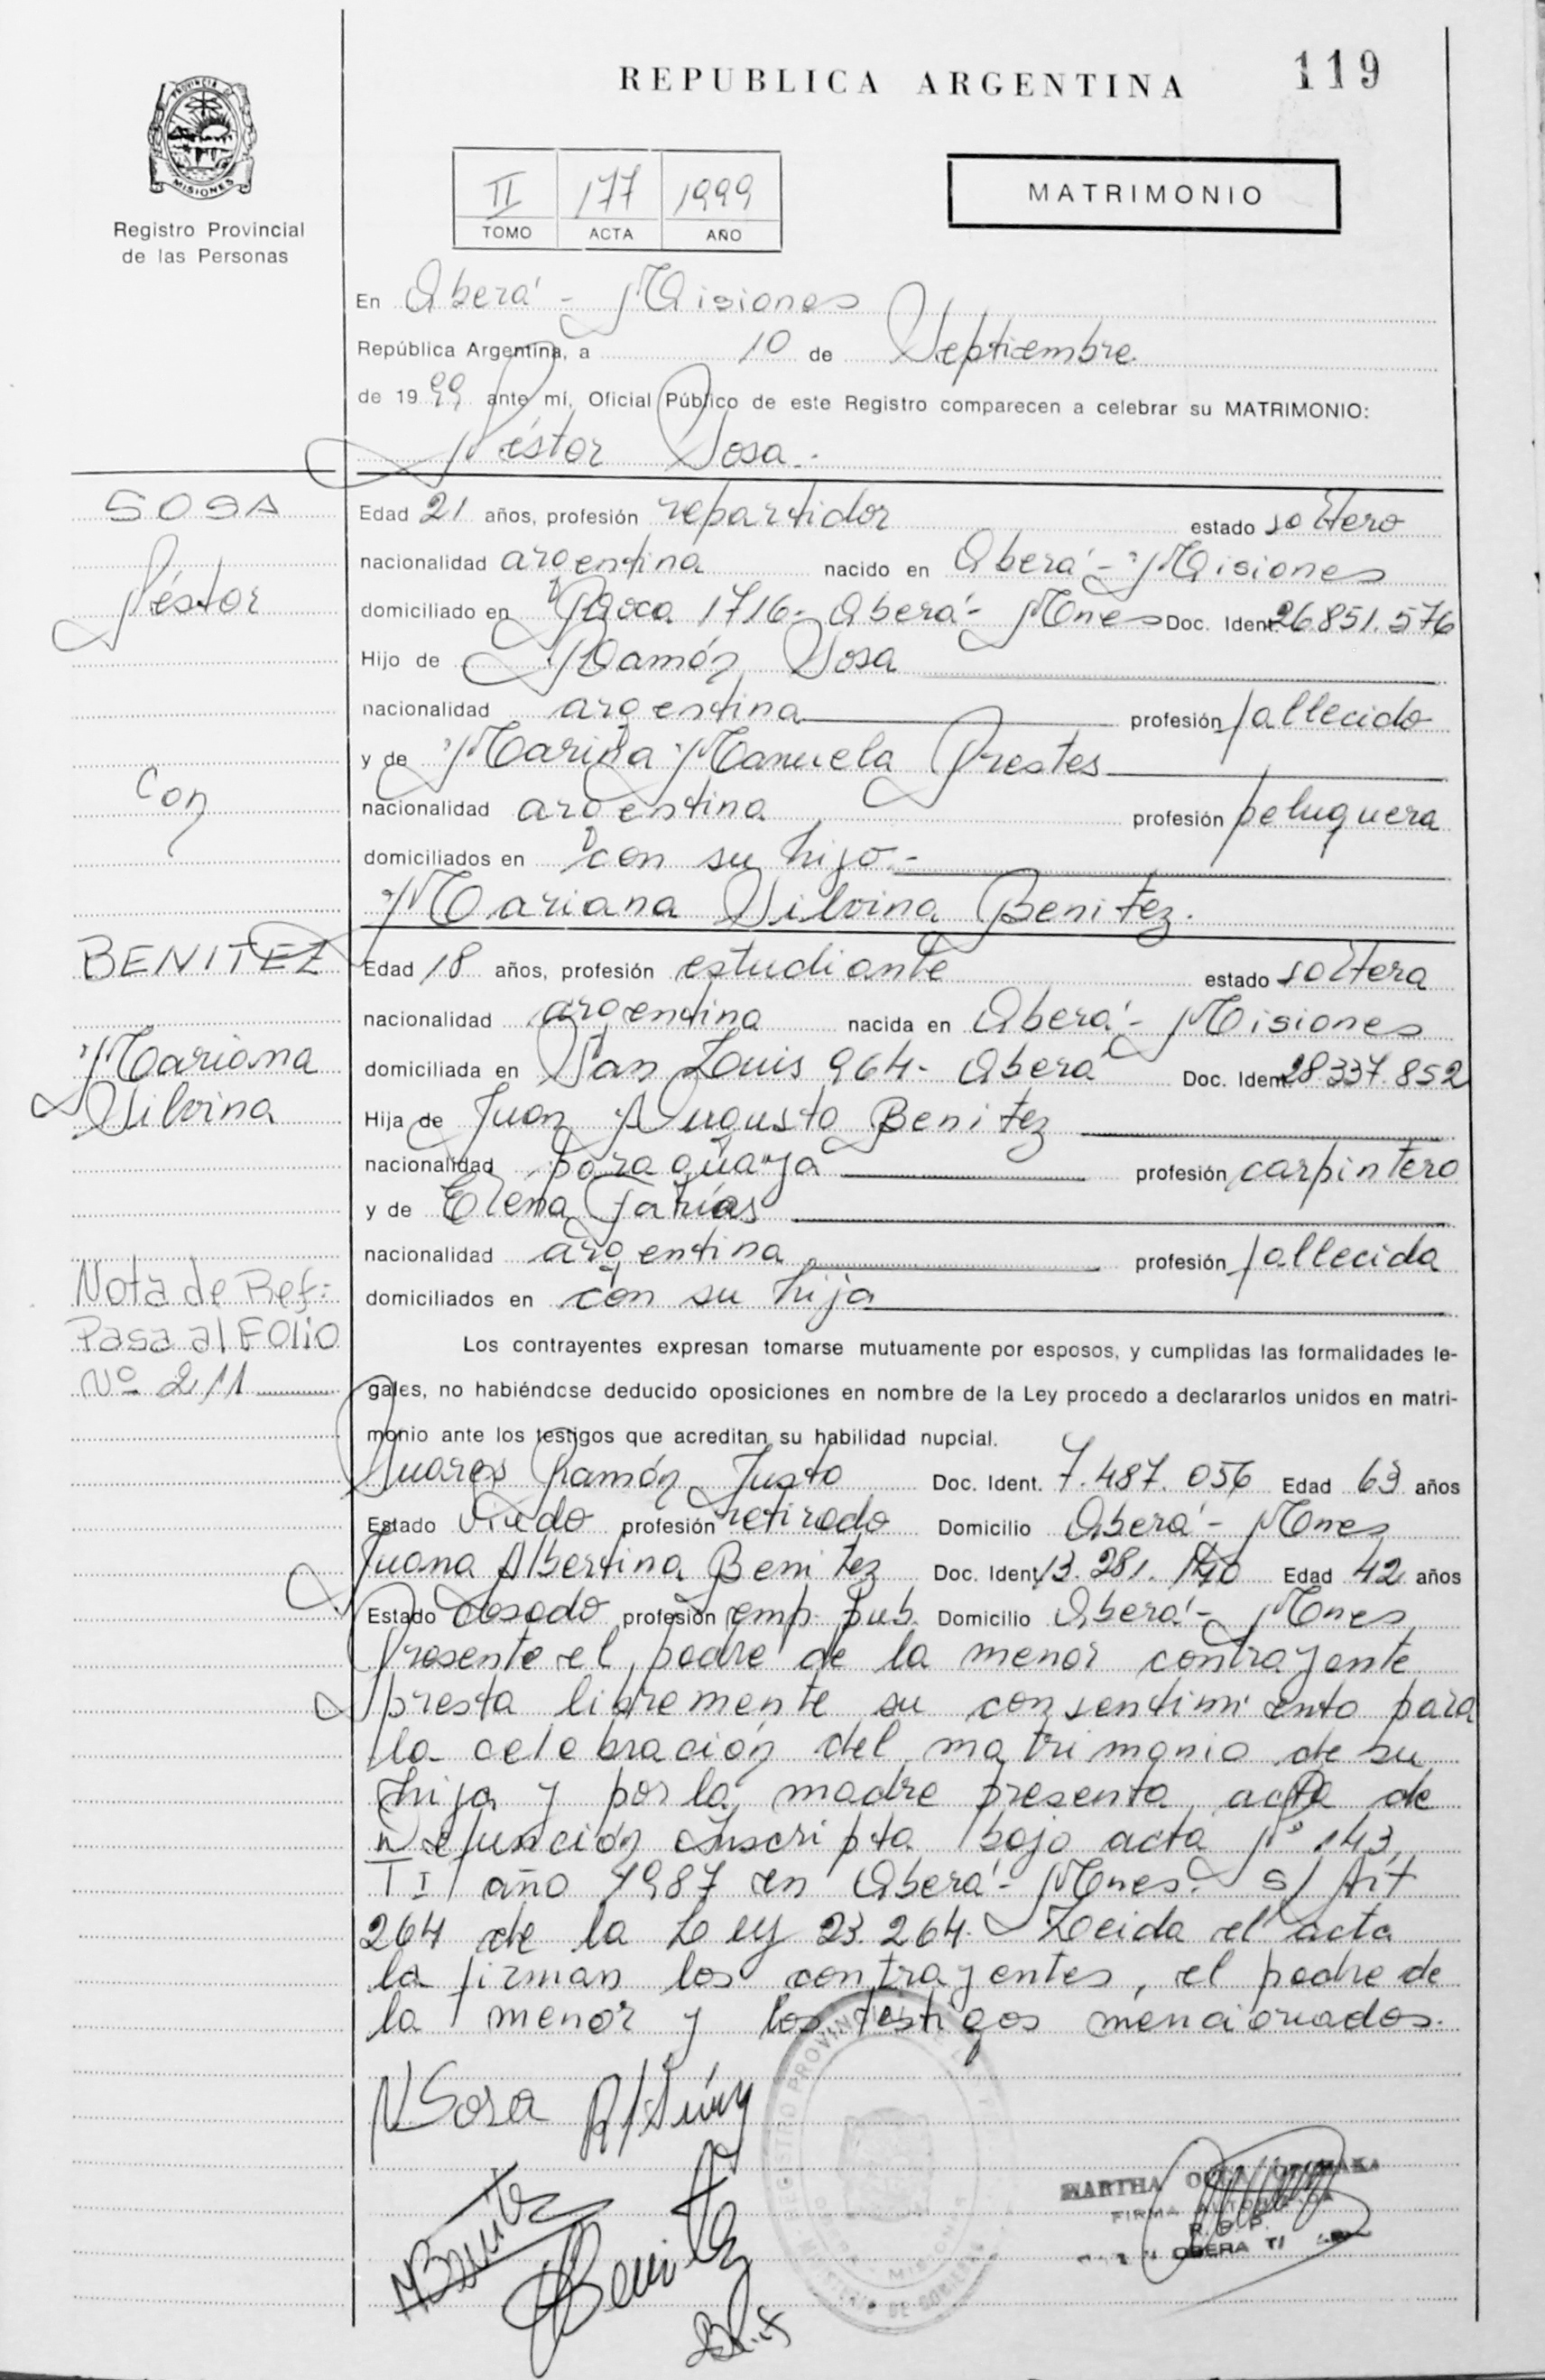 119
REPUBLICA ARGENTINA
PROVINCIA DE
MISIONES
Registro Provincial
de las Personas
II 177 1999
TOMO ACTA AÑO
MATRIMONIO
En Oberá - Misiones
República Argentina, a 10 de Septiembre
de 1999 ante mí, Oficial Público de este Registro comparecen a celebrar su MATRIMONIO:
Néstor Sosa.-
SOSA
Néstor
con
BENITEZ
Mariana
Silvina
Nota de Ref:
Pasa al Folio
Nº 211
Edad 21 años, profesión repartidor estado soltero
nacionalidad argentina nacido en Oberá - Misiones
domiciliado en Roca 1716- Oberá- Mnes Doc. Ident. 26.851.576
Hijo de Ramón Sosa
nacionalidad argentina profesión fallecido
y de Manuela Prestes
nacionalidad argentina profesión peluquera
domiciliados en con su hijo.-
Mariana Silvina Benitez.
Edad 18 años, profesión estudiante estado soltera
nacionalidad argentina nacida en Oberá - Misiones
domiciliada en San Louis 964- Oberá Doc. Ident. 28.337.852
Hija de Juan Augusto Benitez
nacionalidad paraguaya profesión carpintero
y de Elena Farías
nacionalidad argentina profesión fallecida
domiciliados en con su hija
Los contrayentes expresan tomarse mutuamente por esposos, y cumplidas las formalidades le-
gales, no habiéndose deducido oposiciones en nombre de la Ley procedo a declararlos unidos en matri-
monio ante los testigos que acreditan su habilidad nupcial.
Ramón Justo Doc. Ident. 7.487.056 Edad 63 años
Estado Viudo profesión retirado Domicilio Oberá - Mnes
Juana Albertina Benitez Doc. Ident. 13.281.190 Edad 42 años
Estado casado profesión emp. pub. Domicilio Oberá - Mnes
Presente el padre de la menor contrayente
presta libremente su consentimiento para
la celebración del matrimonio de su
hija y por la madre presenta acta de
defunción inscripta bajo acta Nº 143,
T I año 1987 en Oberá - Mnes. s/ Art
264 de la Ley 23.264. Leida el acta
la firman los contrayentes, el padre de
la menor y los testigos mencionados.
NSosa
MBenitez
Benitez
REGISTRO PROVINCIAL DE
MINISTERIO DE GOBIERNO
MISIONES
MARTHA
FIRMA AUTORIZADA
R. P. P.
OBERA